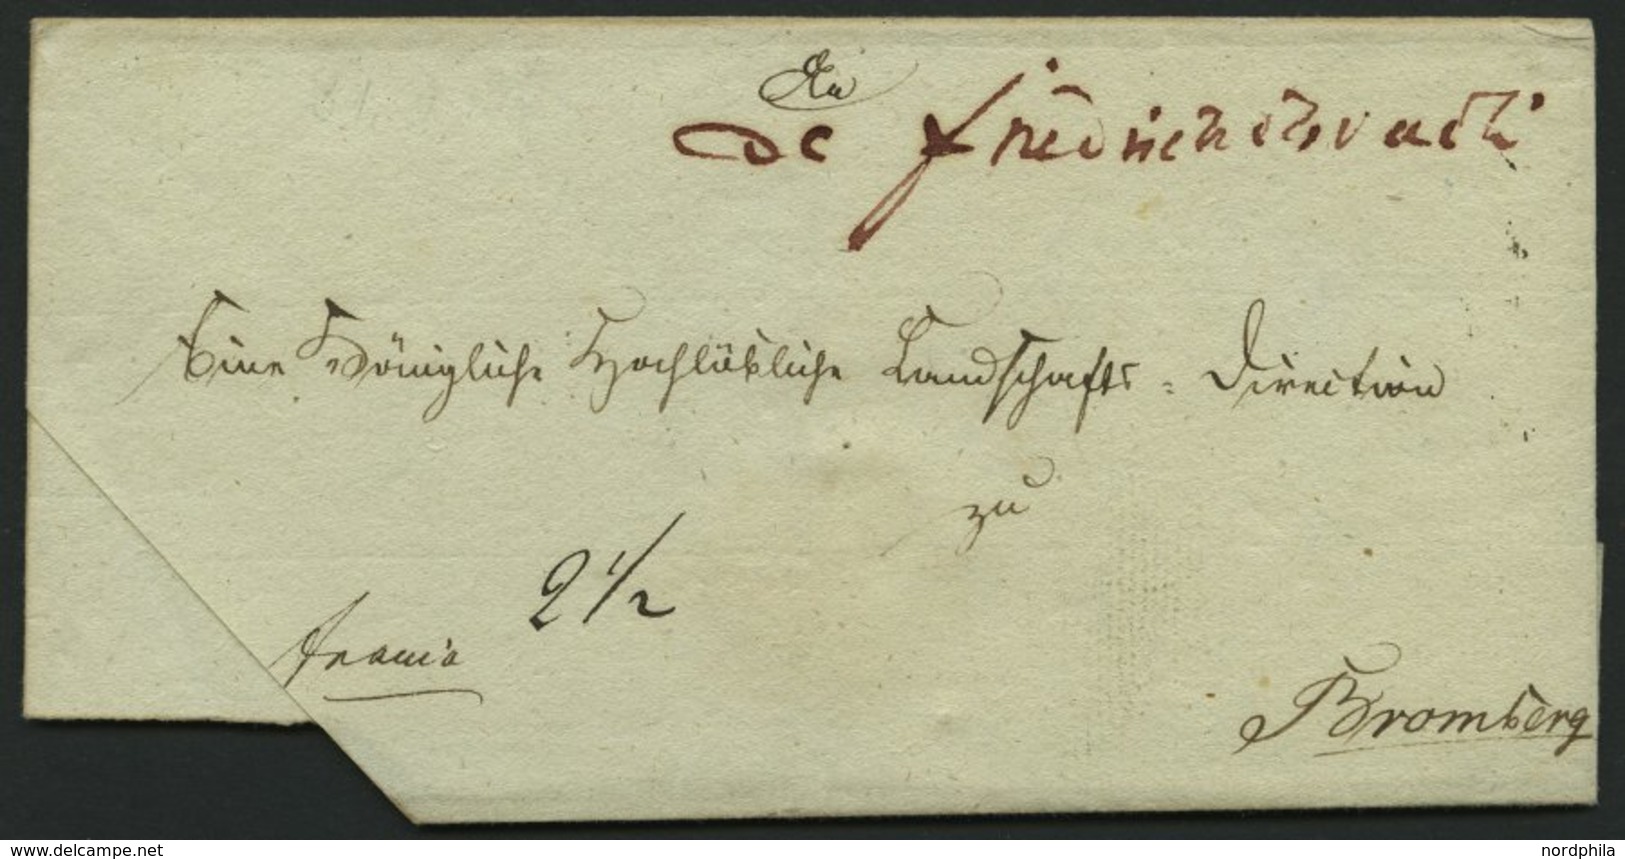 An
de Friedrichsbruch
Eine Königliche Hochlöbliche Landschafts = Direction
zu
2 1/2
franco
Bromberg
www.delcampe.net
nordphila